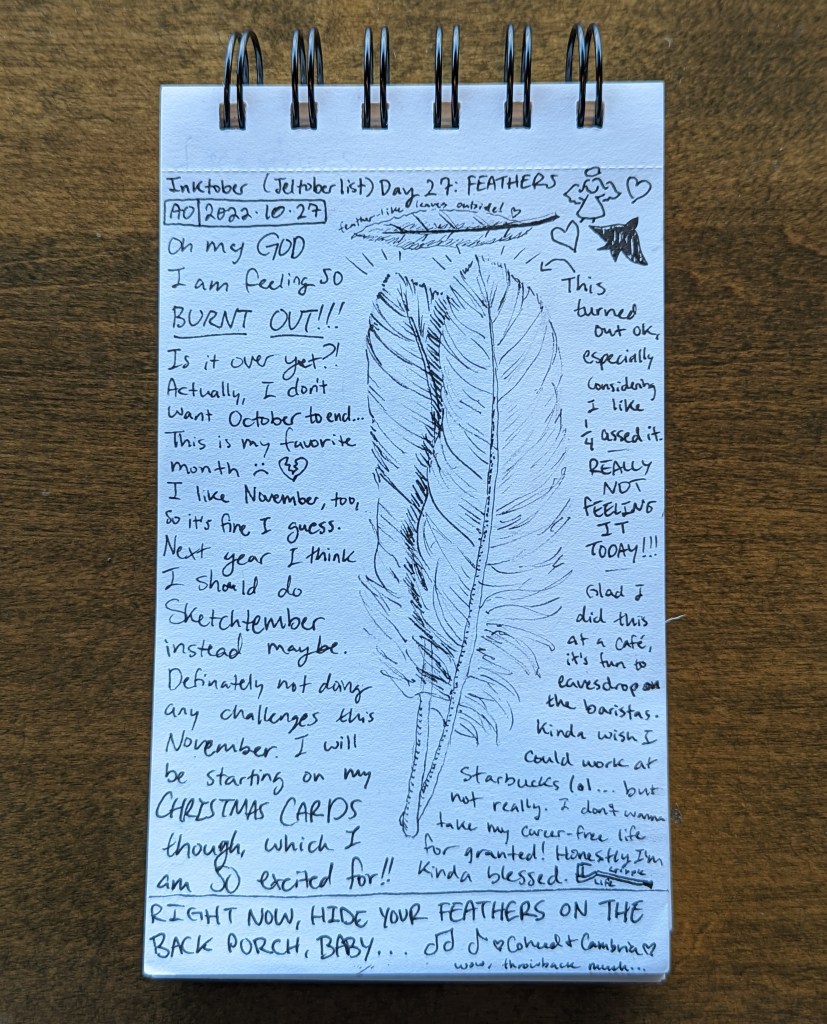 Inktober (Jeltober list) Day 27: FEATHERS
AO 2022.10.27
feather-like leaves outside!
Oh my GOD
I am feeling so
BURNT OUT!!!
Is it over yet?!
Actually, I don't
want October to end...
This is my favorite
month
I like November, too,
So it's fine I guess.
Next year I think
I should do
Sketchtember
instead maybe.
Definately not doing
any challenges this
November. I will
be starting on my
CHRISTMAS CARDS
though, which I
am SO excited for!!
This
turned
out ok,
especially
considering
I like
1/4 assed it.
REALLY
NOT
FEELING
IT
TODAY!!!
Glad I
did this
at a café,
it's fun to
eavesdrop on
the baristas.
Kinda wish I
could work at
Starbucks lol... but
not really. I don't wanna
take my career-free life
for granted! Honestly I'm
kinda blessed.
life
RIGHT NOW, HIDE YOUR FEATHERS ON THE
BACK PORCH, BABY... ♫ ♪ ♡Coheed + Cambria♡
wow, throwback much...